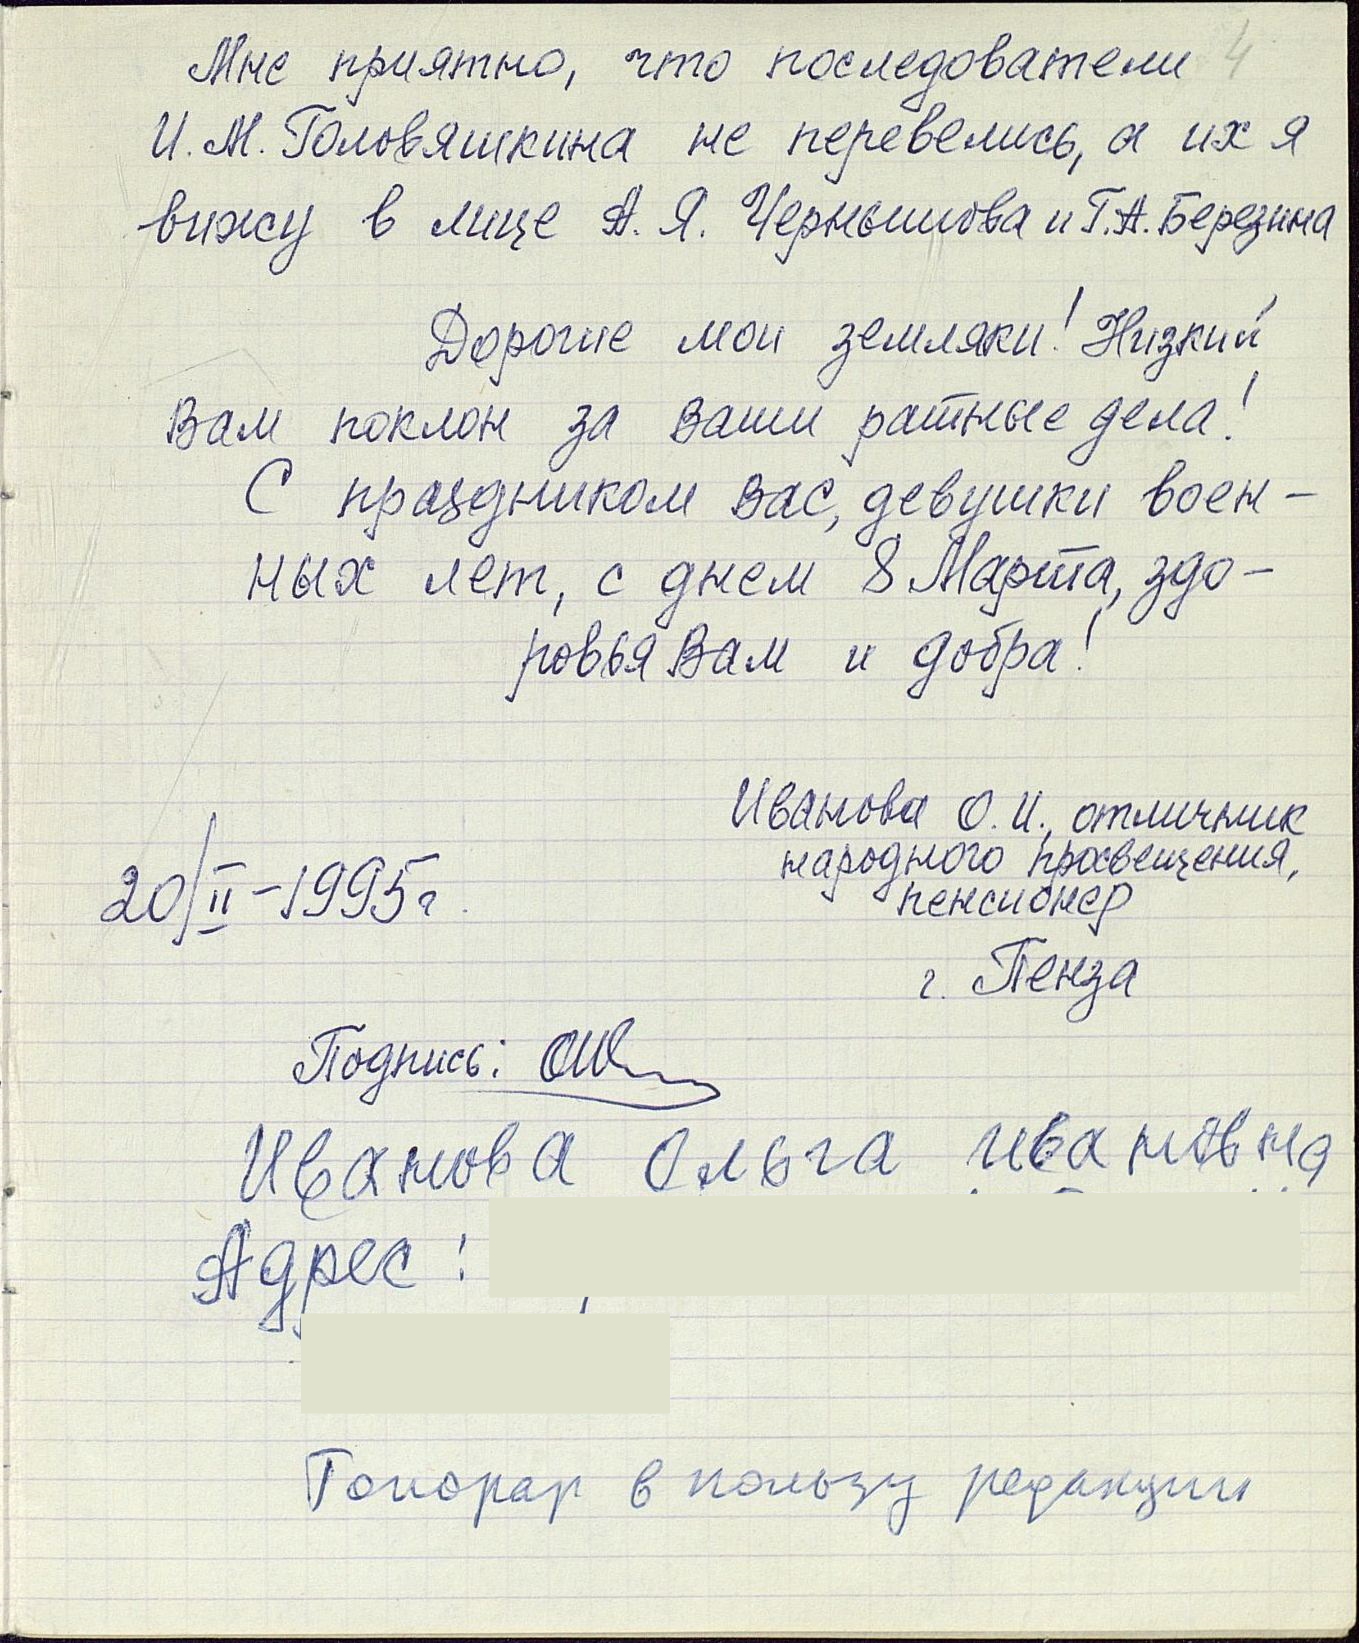 4
Мне приятно, что последователи
И. М. Головяшкина не перевелись, а их я
вижу в лице А. Я. Чернышова и Г. А. Березина
Дорогие мои земляки! Низкий
Вам поклон за ваши ратные дела!
С праздником вас, девушки воен-
ных лет, с днем 8 Марта, здо-
ровья Вам и добра!
Иванова О. И., отличник
народного просвещения,
пенсионер
20/II-1995г.
г. Пенза
Подпись:
Иванова Ольга Ивановна
Адрес:
Гонорар в пользу редакции